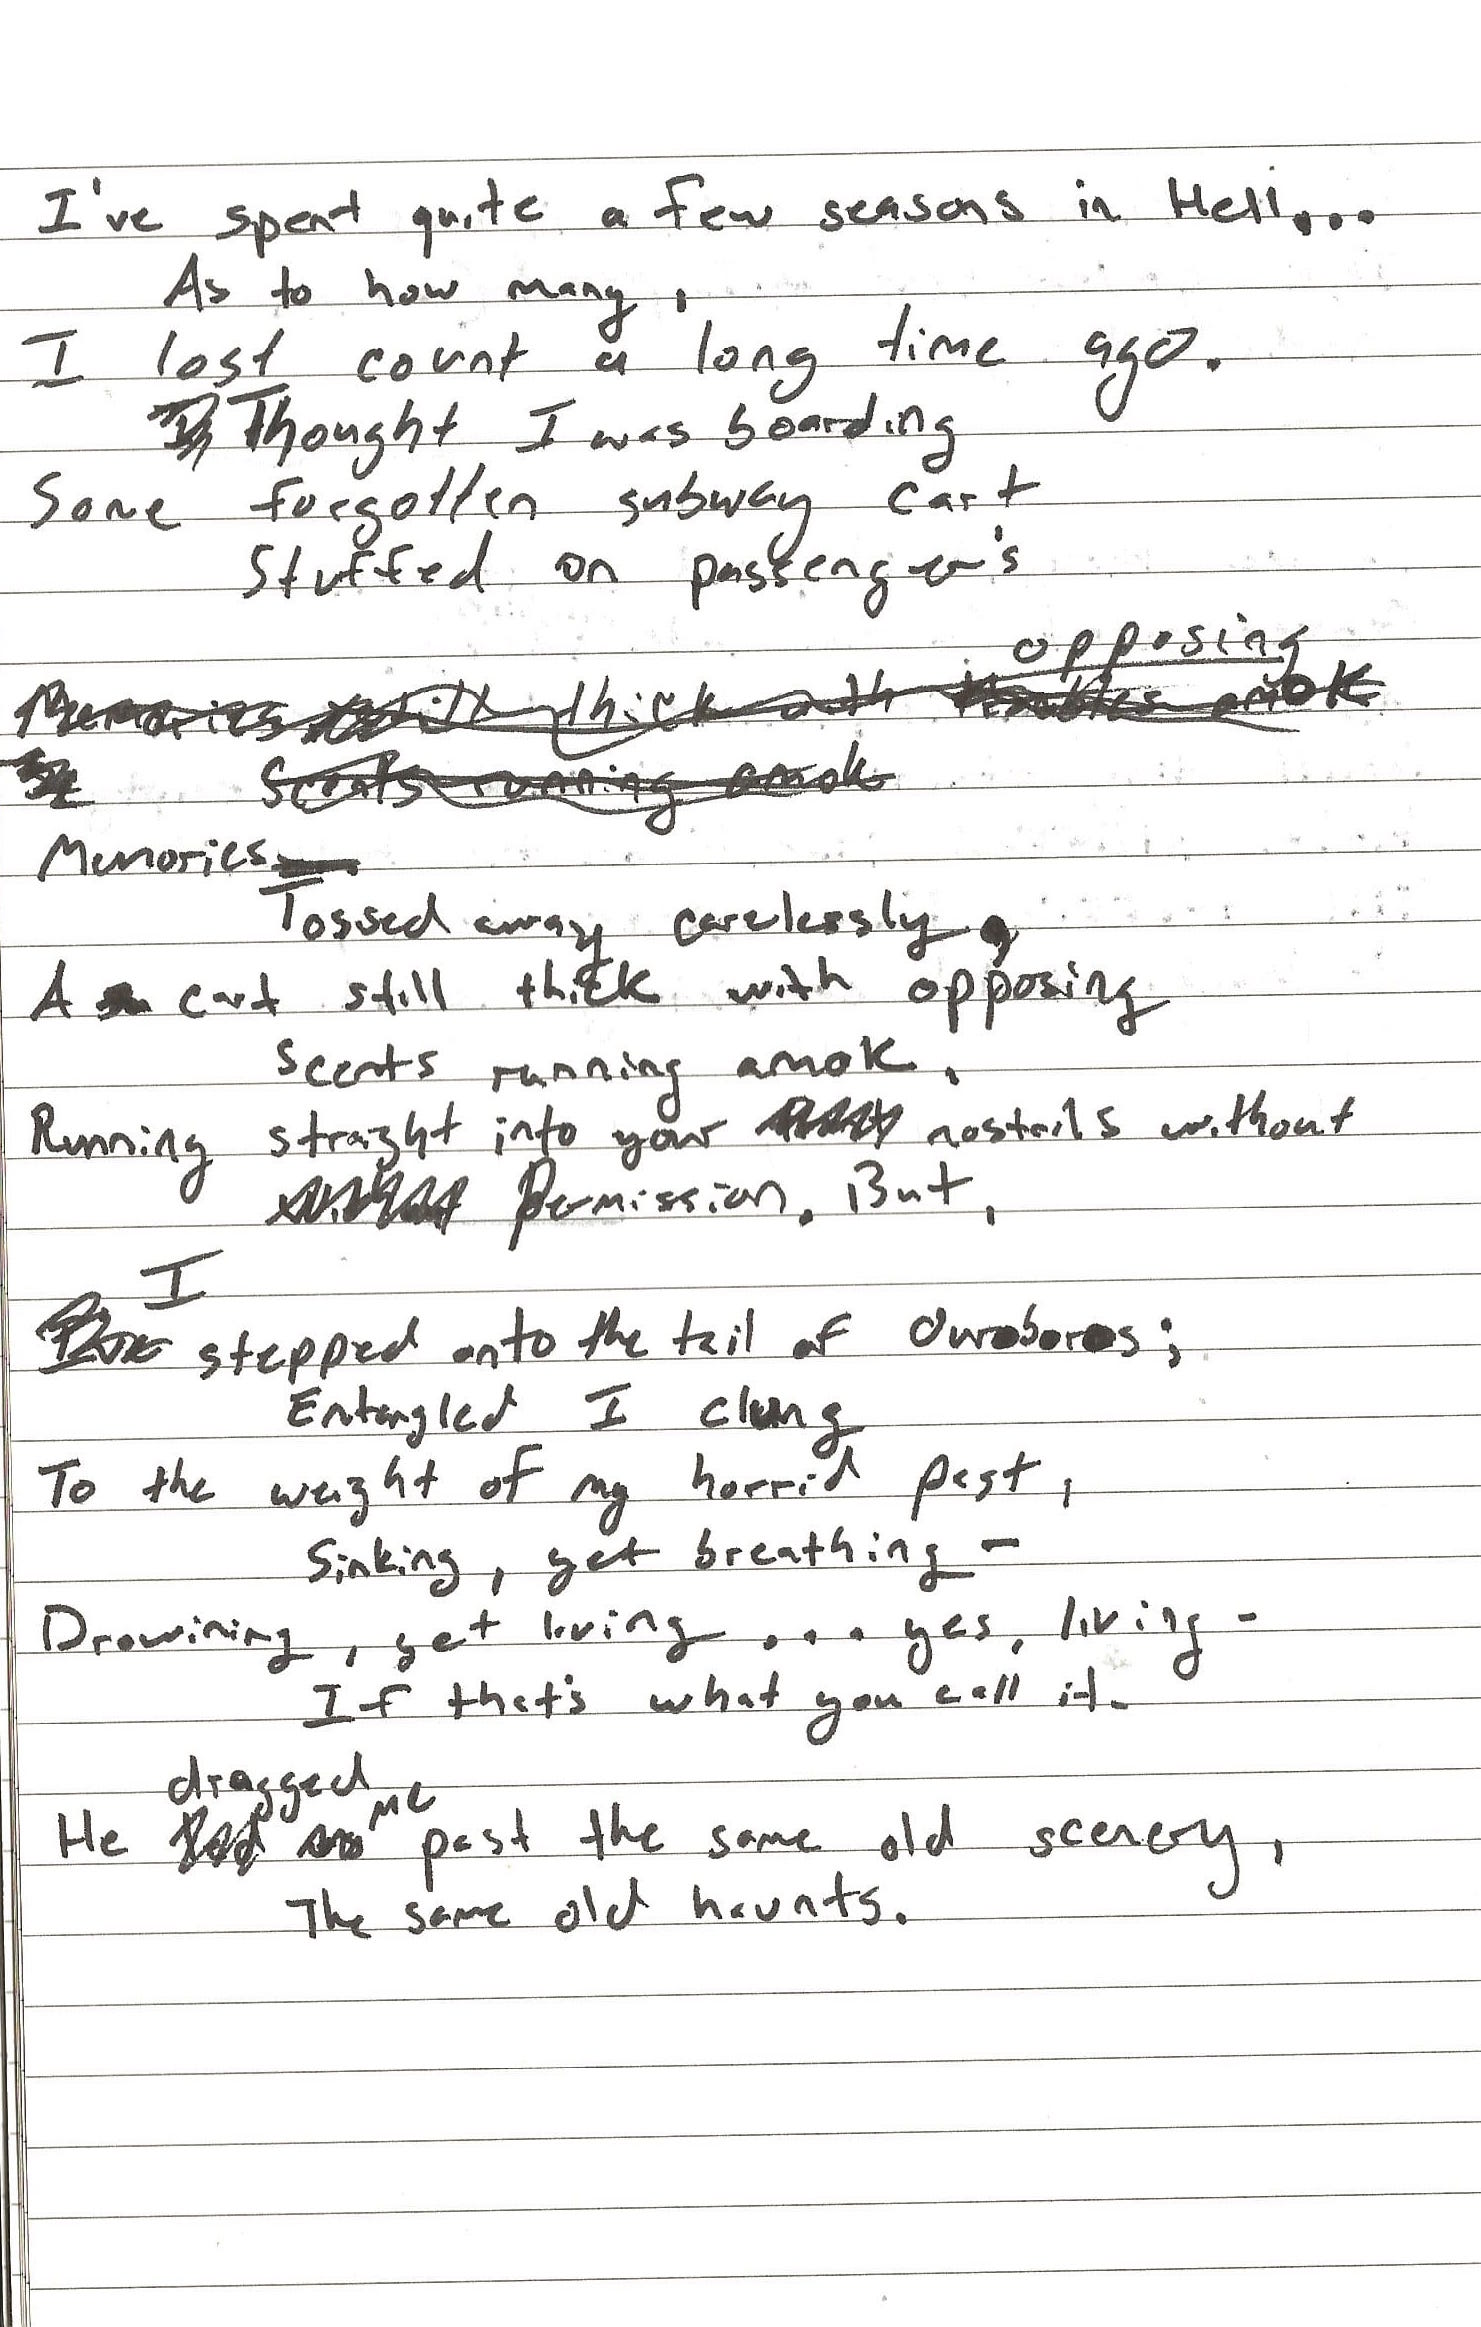 I've spent quite a few seasons in Hell...
As to how many,
I lost count a long time ago.
Thought I was boarding
Some forgotten subway cart
Stuffed on passenger's
opposing
Memories still thick with amok
Scents running amok
Memories
Tossed away carelessly,
A cart still thick with opposing
Scents running amok,
Running straight into your nostrils without
Permission. But,
I
stepped onto the tail of Ouroboros;
Entangled I clung
To the weight of my horrid past,
Sinking, yet breathing -
Drowining, yet living... yes, living -
If that's what you call it.
dragged me
He past the same old scenery,
The same old haunts.